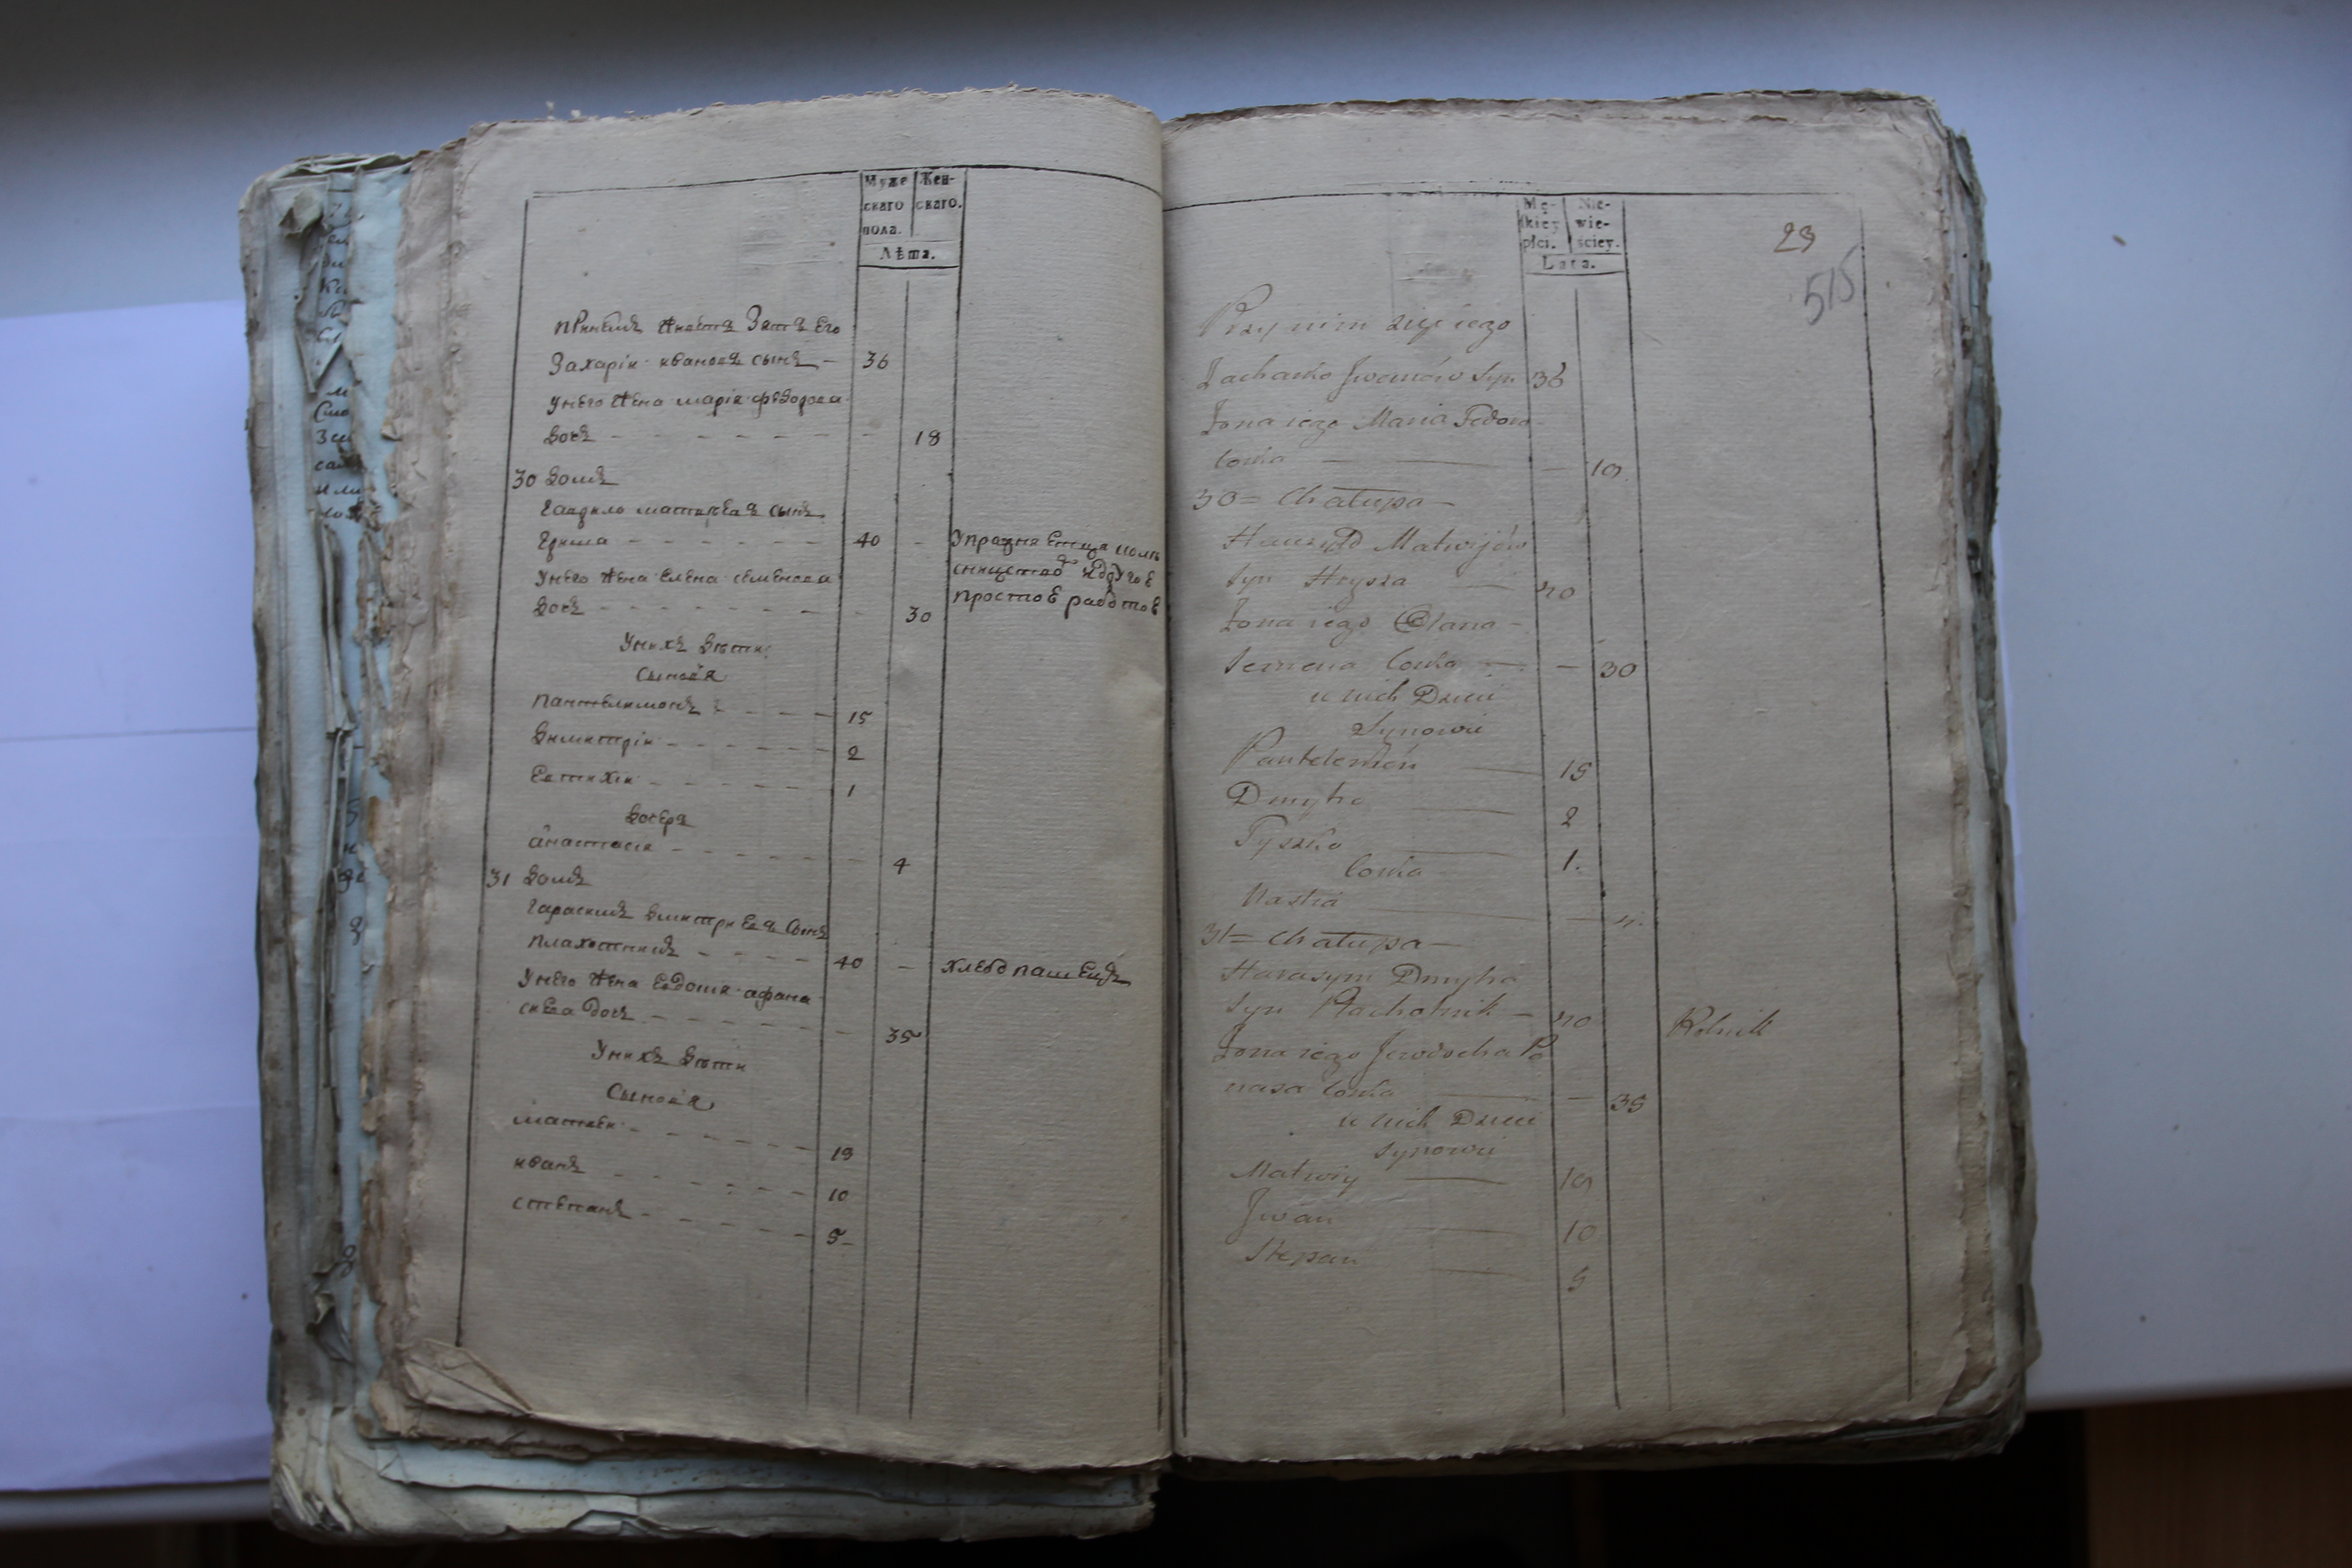 Муже
скаго
пола.
Жен-
скаго.
Лѣта.
принемъ живетъ Зять Его
Захарій ивановъ сынъ - 36
Унего жена марія федорова
дочь - - - - - - - 18
30 домъ
Гаврило матвѣевъ сынъ
Гриша - - - - - - 40 -
Унего жена Елена семенова
дочь - - - - - - - 30
Унихъ дѣти:
сыновя
пантелимонъ - - - - 15
димитрій - - - - - 2
Евтихій - - - - - 1
дочеря
анастасія - - - - - 4
31 домъ
Гарасимъ димитриевъ сынъ
плахотникъ - - - - 40 -
Унего жена Евдокія афана
сиева дочь - - - - - 35
Унихъ дѣти
Сыновя
матвей - - - - - 19
иванъ - - - - - 10
степанъ - - - - - 5-
простоЕ работоЕ
хлебопашецъ
Mę-
skiey
płci.
Nie-
wie-
ściey.
Lata.
23
515
Przy nim zięć iego
Zacharko Jwanów Syn 36
Żona iego Maria Fedoro-
Corka — — 19.
30= Chałupa —
Hawryło Matwijów
Syn Hrysza — 40
Żona iego Olana -
Semena Corka — — 30
u nich Dzieci
Synowie
Pantelemon — 15
Dmytro — 2
Tyszko — 1.
Corka
Nastia — — 4.
31= Chałupa —
Harasym Dmytra
Syn Płachotnik — 40
Rolnik
Żona iego Jewdocha Pa
nasa Corka — — 35
u nich Dzieci
Synowie
Matwiy — 19
Jwan — 10
Stepan — 5